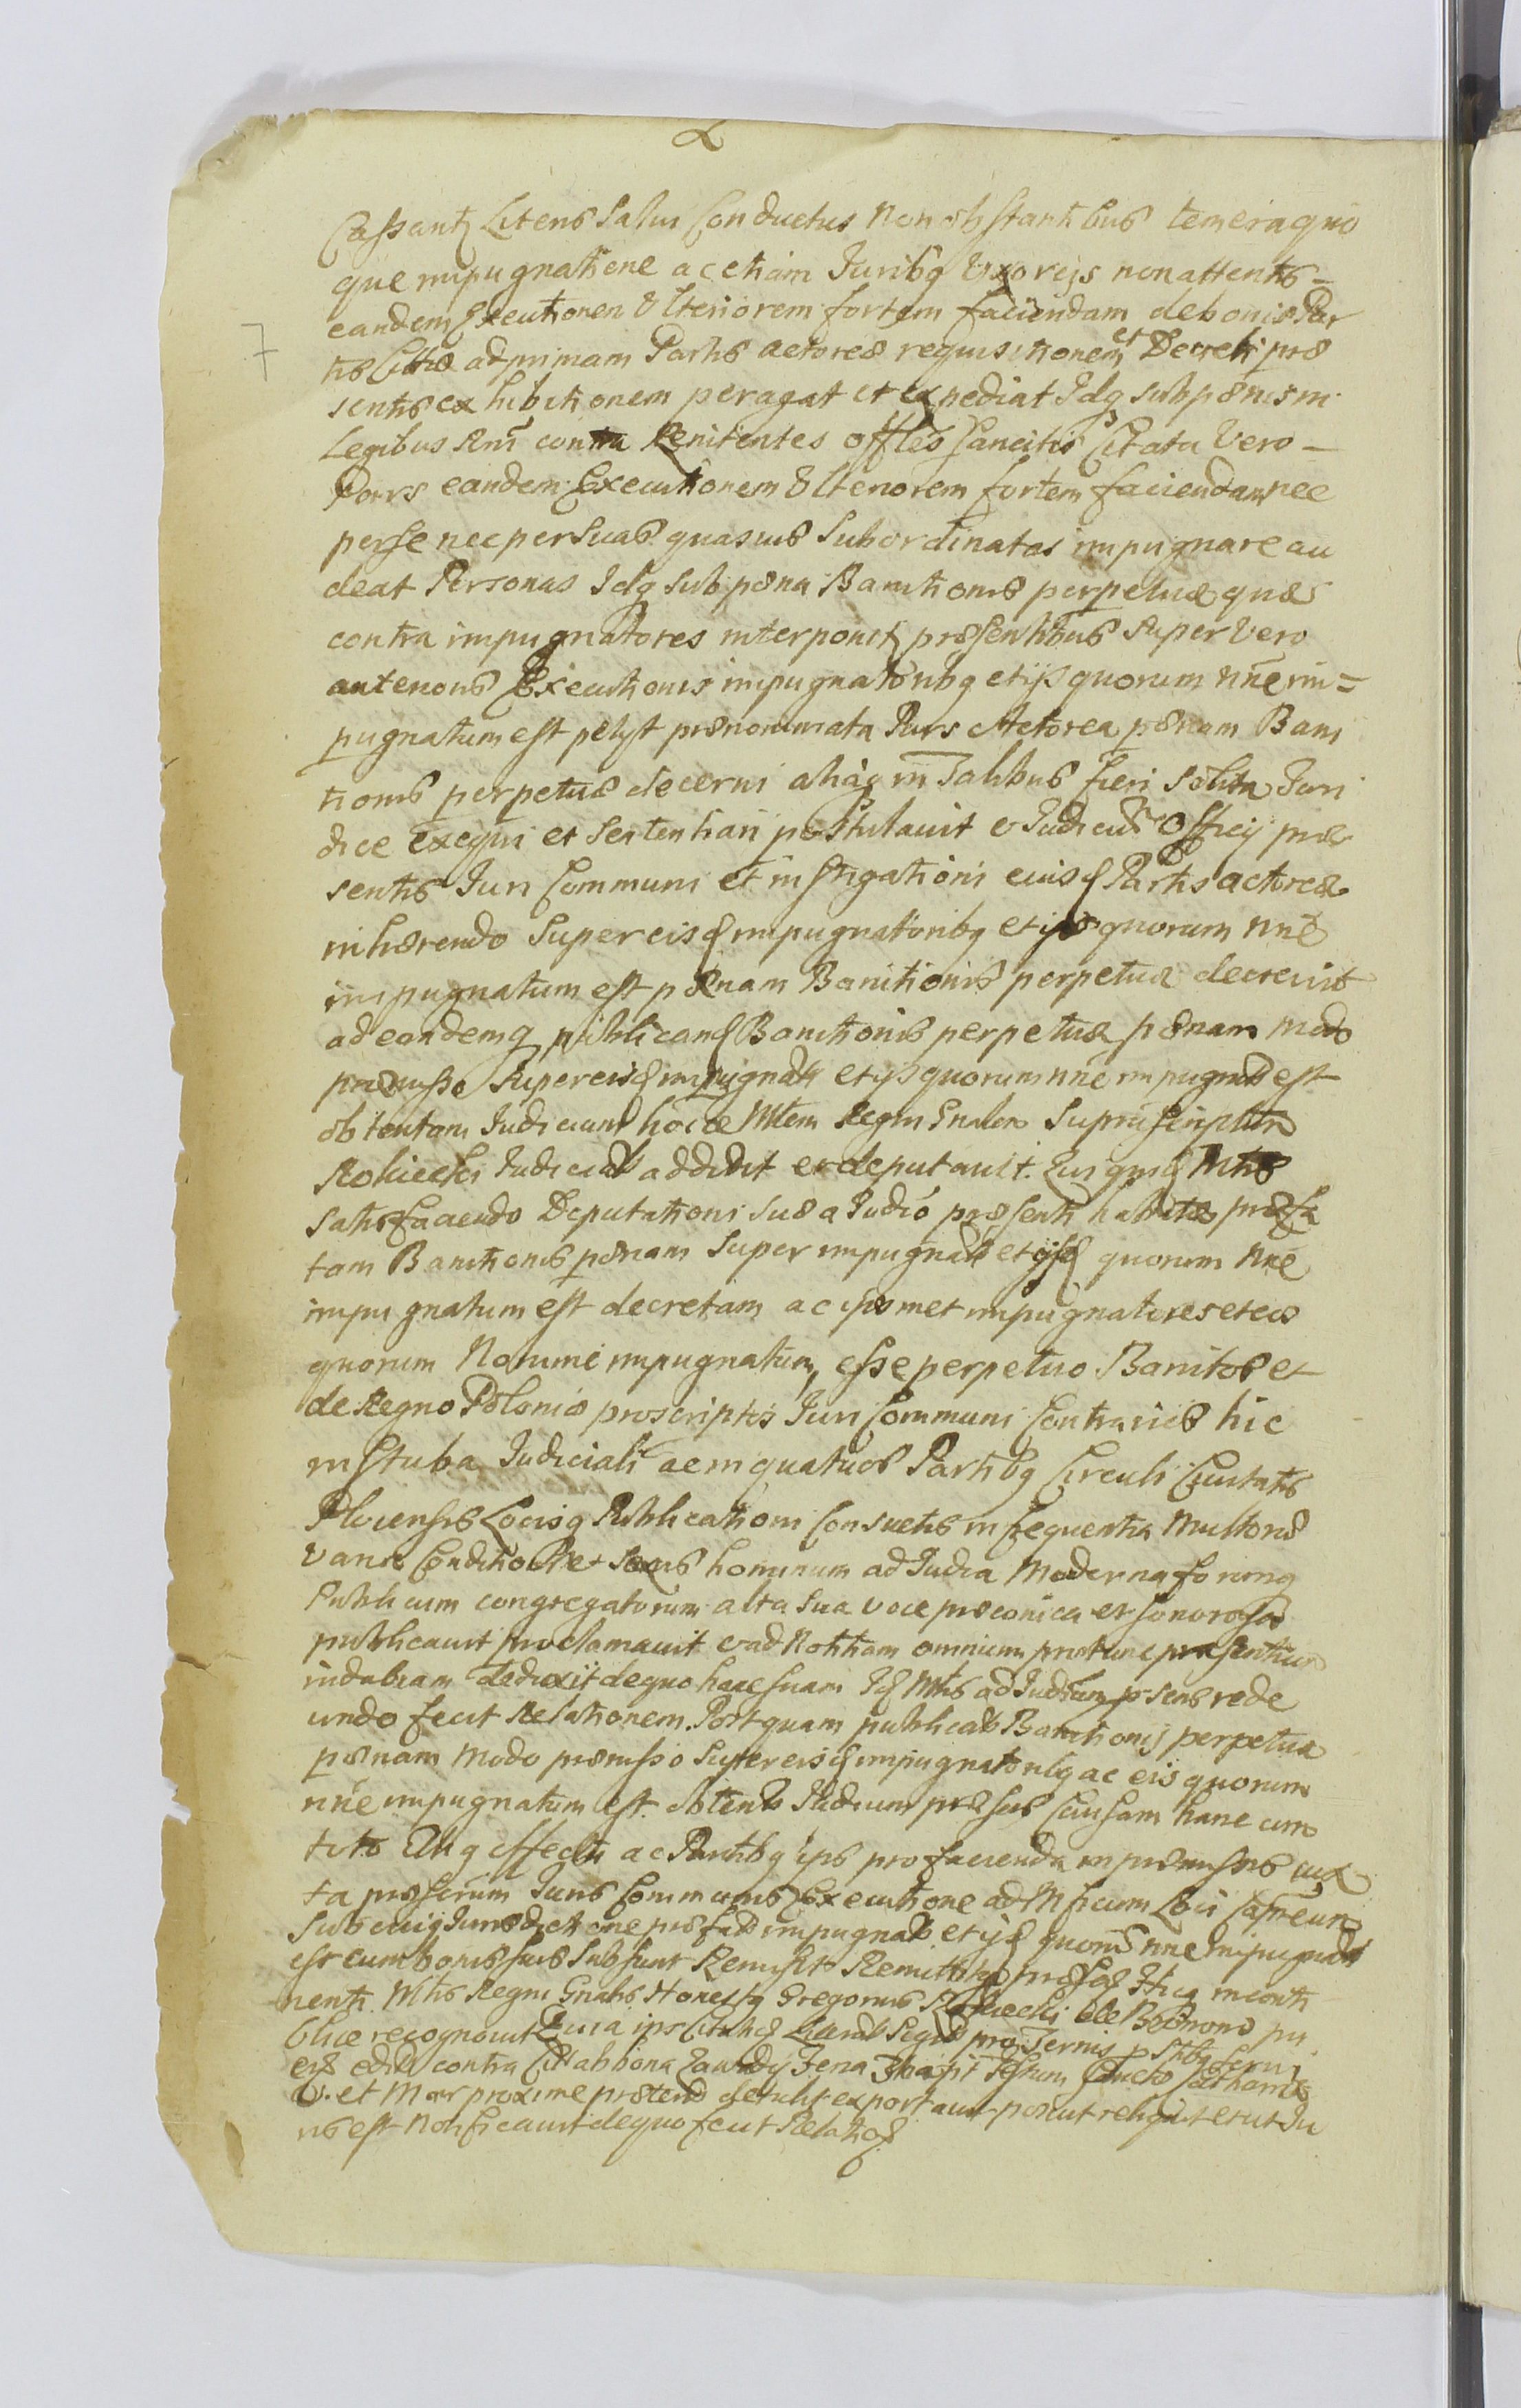 Cassant Literis Salvi Conductus non obstantibus temeraquo
que impugnatione ac etiam Juribq Uxoreis non attentis
eandem Executionem Ulteriorem fortem faciendam de bonis Par
tis Cittae ad primam Partis actoreae requisitionem et Decreti prae
sentis exhibitionem peragat et expediat Idq sub poenis in
Legibus Rni contra Renitentes Offles Sancitis Citata Vero
Pars eandem Executionem Ulteriorem fortem faciendam nec
per se nec per Suas quasvis Subordinatas impugnare au
deat Personas Idq sub poena Banitionis perpetuae quae
contra impugnatores interponit praesentibus Super Vero
anterioris Executionis impugnatoribq et ijs quorum nne im=
pugnatum est prenominata Pars Actorea poenam Bani
tionis perpetuae decerni aliaq in Talibus fieri Solita Juri
dice exequi et Sententiari postulavit & Judicium Officij prae
sentis Juri Communi et instigationi eiusd Partis actoreae
inhaerendo Super eisd impugnatoribq et ijs quorum nne
impugnatum est poenam Banitionis perpetuae decrevit
ad eandemq publicand Banitionis perpetuae poenam modo
praemisso Super eisd impugnatis et ijs quorum nne impugnatum est
obtentam Judicium hocce Mtem Regni Gnalem Supra scriptum
Rokicki Judicialr addidit et deputavit. Qui quid Mtis
Satisfaciendo Deputationi Suae a Judio praesenti habitae praefa
tam Banitionis poenam Super impugnatr et ijsd quorum nne
impugnatum est decretam ac ipsosmet impugnatores et eos
quorum Nomine impugnatum, esse perpetuo Banitos et
de Regno Poloniae proscriptos Juri Communi Contrarios hic
in Stuba Judiciali ac in quatuor Partibq Circuli Civitatis
Plocensis Locisq Publicationi Consuetis in frequentia Multorum
Variae Conditionis et Sexus hominum ad Judia Moderna forumq
Publicum congregatorum alta Sua voce praeconica et sonorosa
publicavit proclamavit & ad Notitiam omnium pro tunc praesentium
indubiam deduxit de quo hanc suam Id Mtis ad Judium psens rede
undo fecit Relationem. Postquam publicatr Banitionis perpetuae
poenam modo praemisso Super eisd impugnatoribq ac eis quorum
nne impugnatum est obtentr Judicium praesens Causam hanc cum
toto Eiusq effectu ac Partibq ipsis pro facienda in praemissis iux
ta praescriptum Juris Communis Executione ad Officium Loci Capneum
sub cuiq Jurisdictione praefati impugnatr et ijsd quorum nne impugnatr
est cum bonis suis Subsunt Remisit Remittitq praesens Hicq in conti
nenti Mtis Regni Gnalis Honestq Gregorius Rokicki de Bobrowo pu
blice recognovit
eisd edita contra
et Mar proxime praeteritis detulit exportavit posuit reliquit et ut Ju
ris est notificavit de quo fecit Relatiod